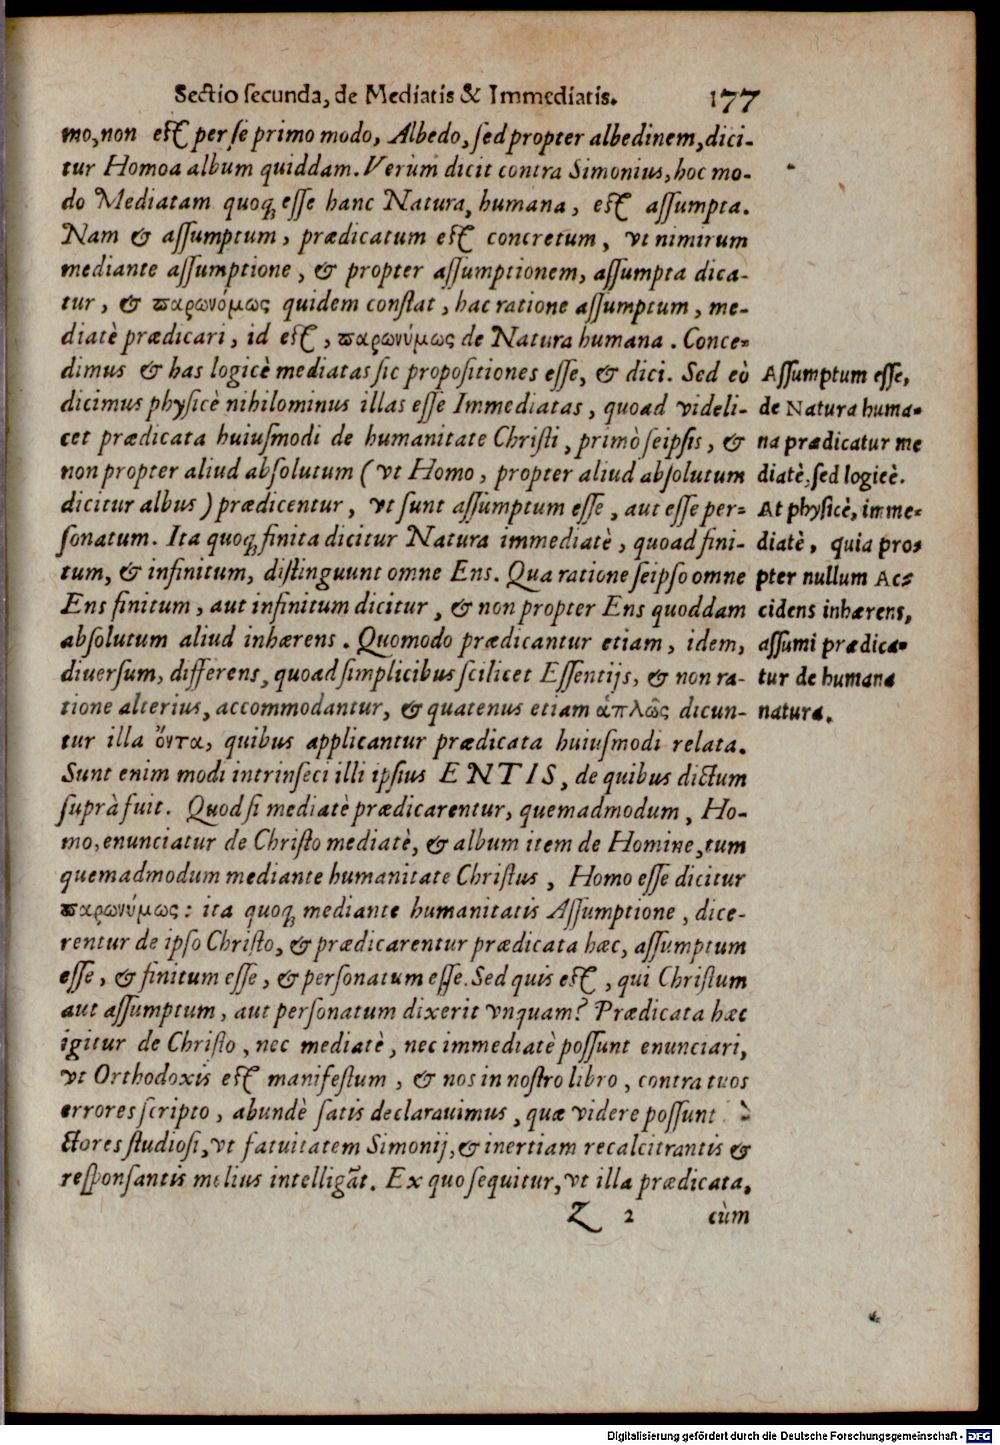 Sectio secunda, de Mediatis & Immediatis. 177
mo, non est per se primo modo, Albedo, sed propter albedinem, dici-
tur Homo a album quiddam. Verùm dicit contra Simonius, hoc mo-
do Mediatam quoq; esse hanc Natura, humana, est assumpta.
Nam & assumptum, prædicatum est concretum, vt nimirum
mediante assumptione, & propter assumptionem, assumpta dica-
tur, & παρωνόμως quidem constat, hac ratione assumptum, me-
diatè prædicari, id est, παρωνύμως de Natura humana. Conce-
dimus & has logicè mediatas sic propositiones esse, & dici. Sed eò
dicimus physicè nihilominus illas esse Immediatas, quoad videli-
cet prædicata huiusmodi de humanitate Christi, primò seipsis, &
non propter aliud absolutum (vt Homo, propter aliud absolutum
dicitur albus) prædicentur, vt sunt assumptum esse, aut esse per-
sonatum. Ita quoq; finita dicitur Natura immediatè, quoad fini-
tum, & infinitum, distinguunt omne Ens. Qua ratione seipso omne
Ens finitum, aut infinitum dicitur, & non propter Ens quoddam
absolutum aliud inhærens. Quomodo prædicantur etiam, idem,
diuersum, differens, quoad simplicibus scilicet Essentijs, & non ra-
tione alterius, accommodantur, & quatenus etiam ἁπλῶς dicun-
tur illa ὄντα, quibus applicantur prædicata huiusmodi relata.
Sunt enim modi intrinseci illi ipsius ENTIS, de quibus dictum
suprà fuit. Quod si mediatè prædicarentur, quemadmodum, Ho-
mo, enunciatur de Christo mediatè, & album item de Homine, tum
quemadmodum mediante humanitate Christus, Homo esse dicitur
παρωνύμως: ita quoq; mediante humanitatis Assumptione, dice-
rentur de ipso Christo, & prædicarentur prædicata hæc, assumptum
esse, & finitum esse, & personatum esse. Sed quis est, qui Christum
aut assumptum, aut personatum dixerit vnquam? Prædicata hæc
igitur de Christo, nec mediatè, nec immediatè possunt enunciari,
vt Orthodoxis est manifestum, & nos in nostro libro, contra tuos
errores scripto, abundè satis declarauimus, quæ videre possunt
ctores studiosi, vt fatuitatem Simonij, & inertiam recalcitrantis &
responsantis melius intelligãt. Ex quo sequitur, vt illa prædicata,
Z 2 cùm
Assumptum esse,
de Natura huma-
na prædicatur me
diatè, sed logicè.
At physicè, imme-
diatè, quia pro-
pter nullum Ac-
cidens inhærens,
assumi prædica-
tur de humana
natura.
Digitalisierung gefördert durch die Deutsche Forschungsgemeinschaft - DFG